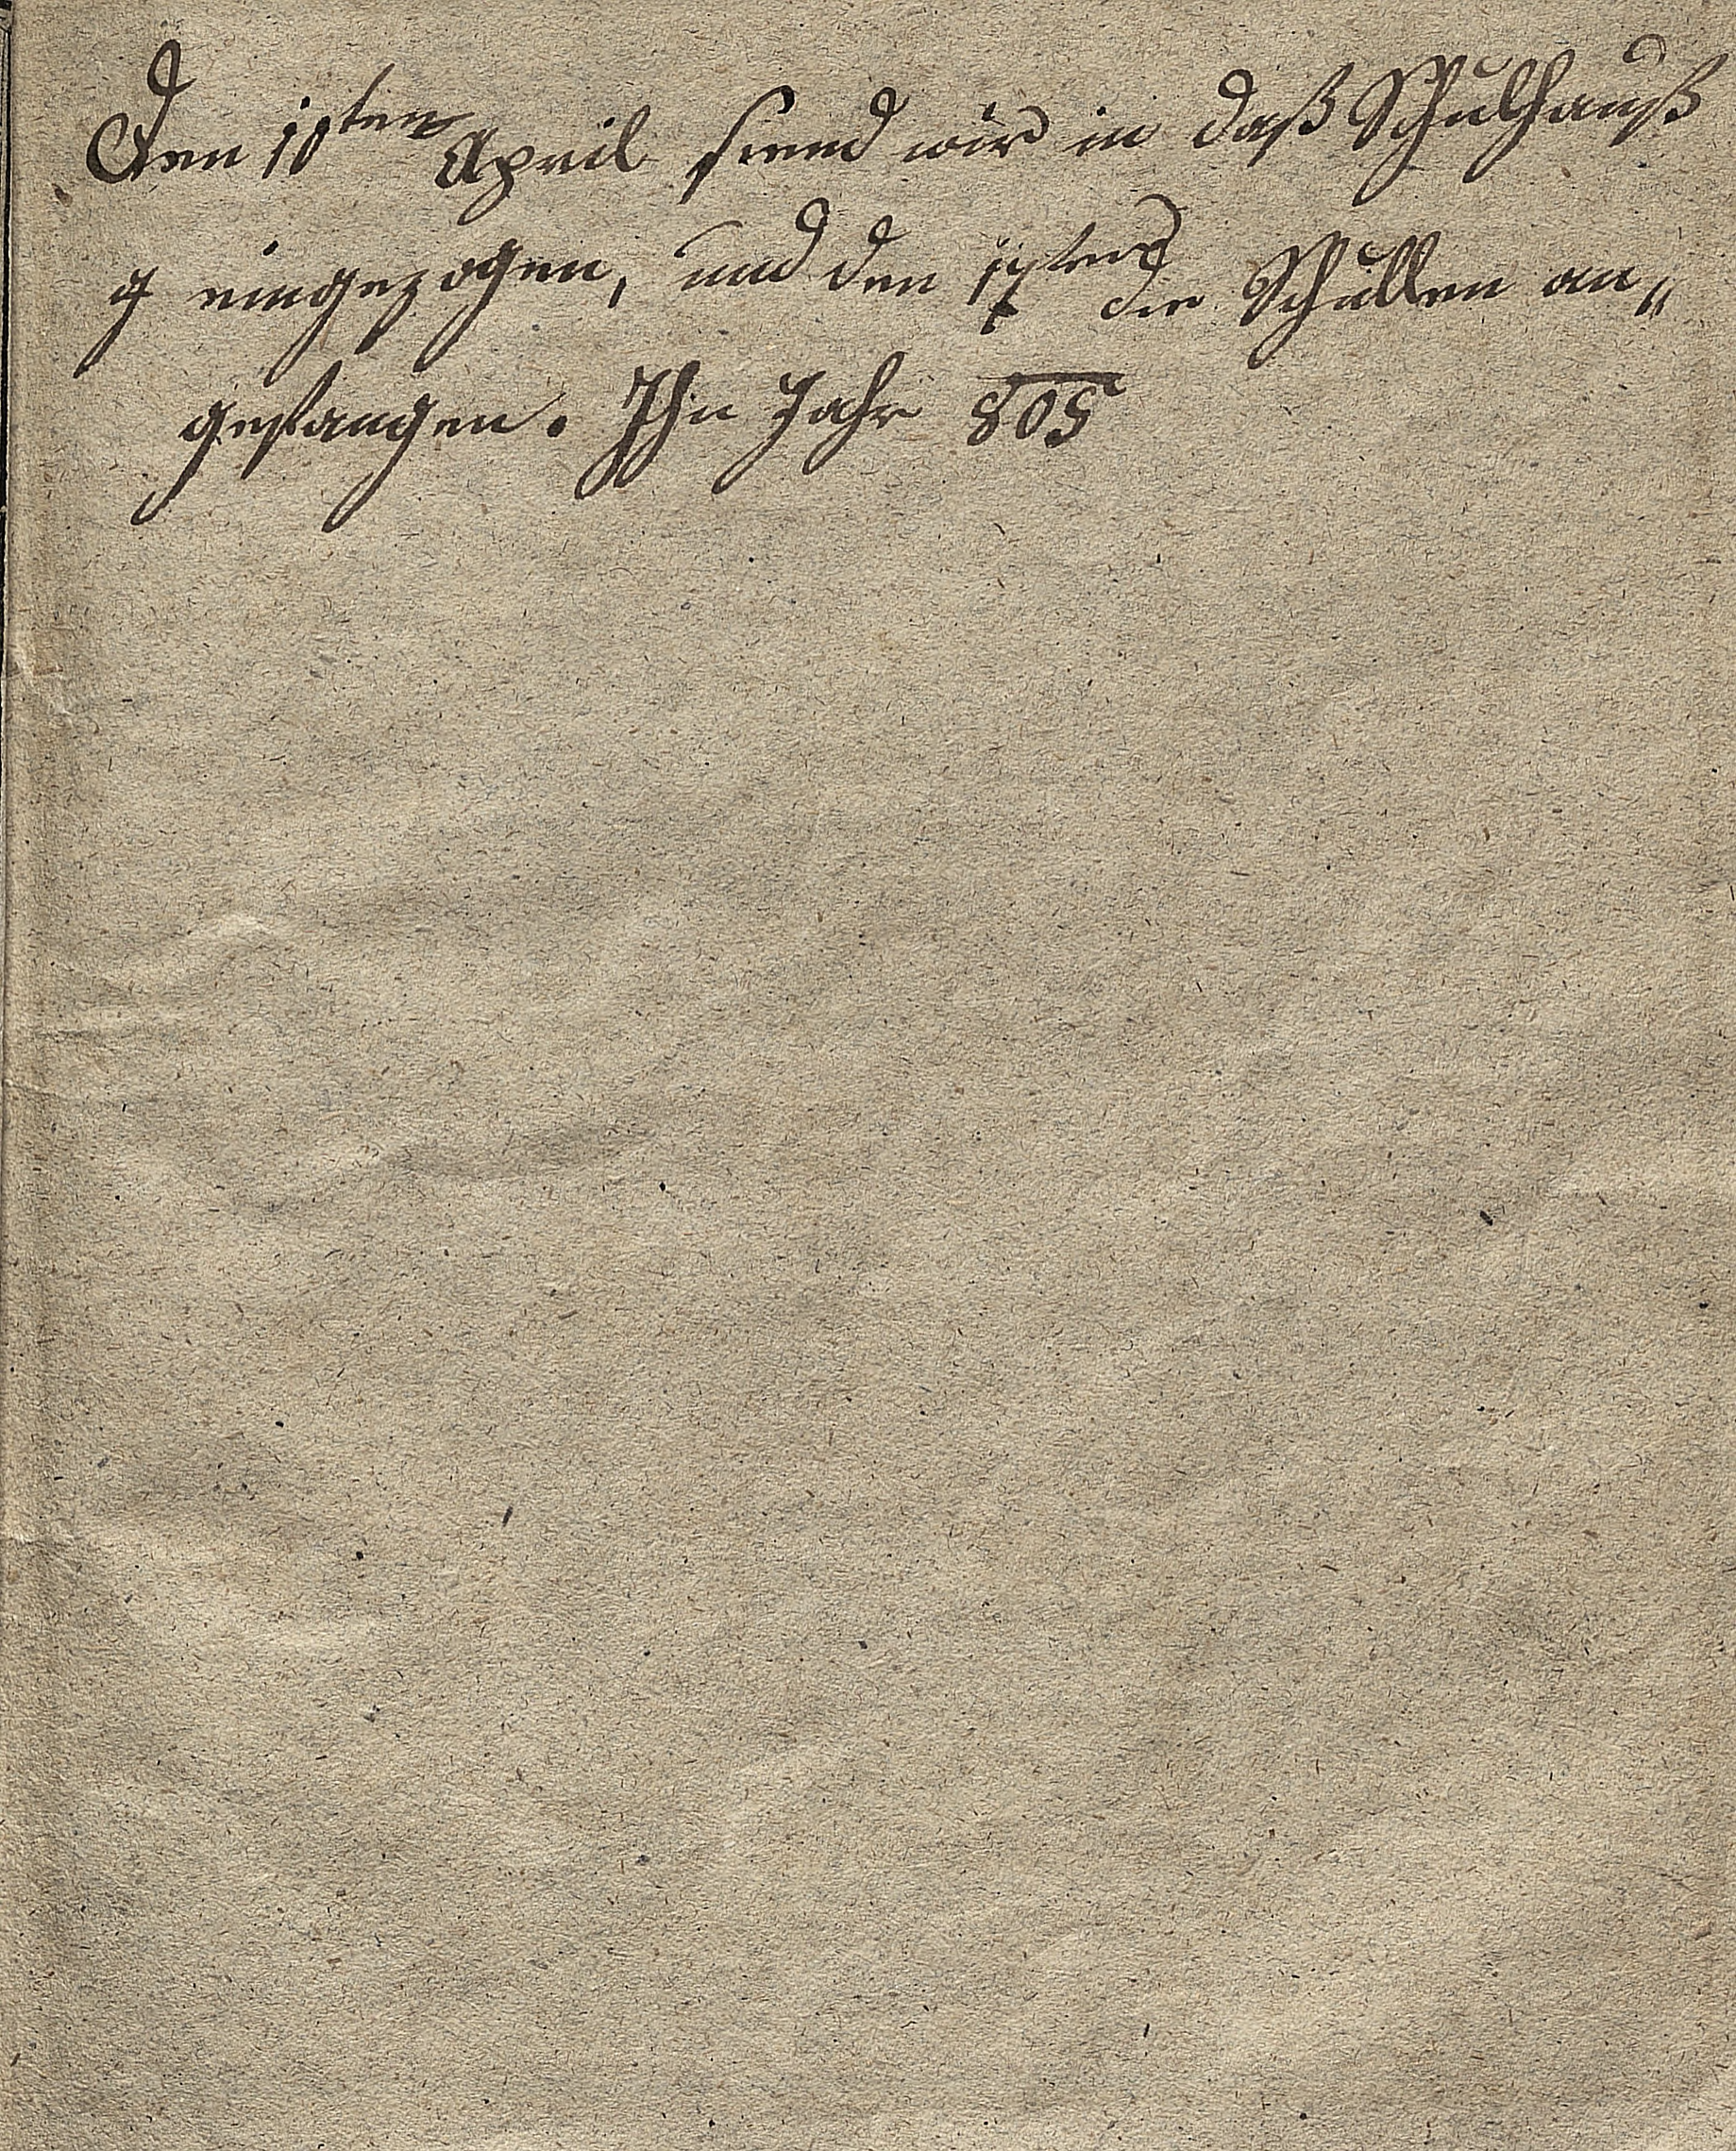 Den 10ten April seend wir in daß Schulhauß
eingezogen, und den 17ten die Schullen an„
gefangen. Ihn Jahr 805